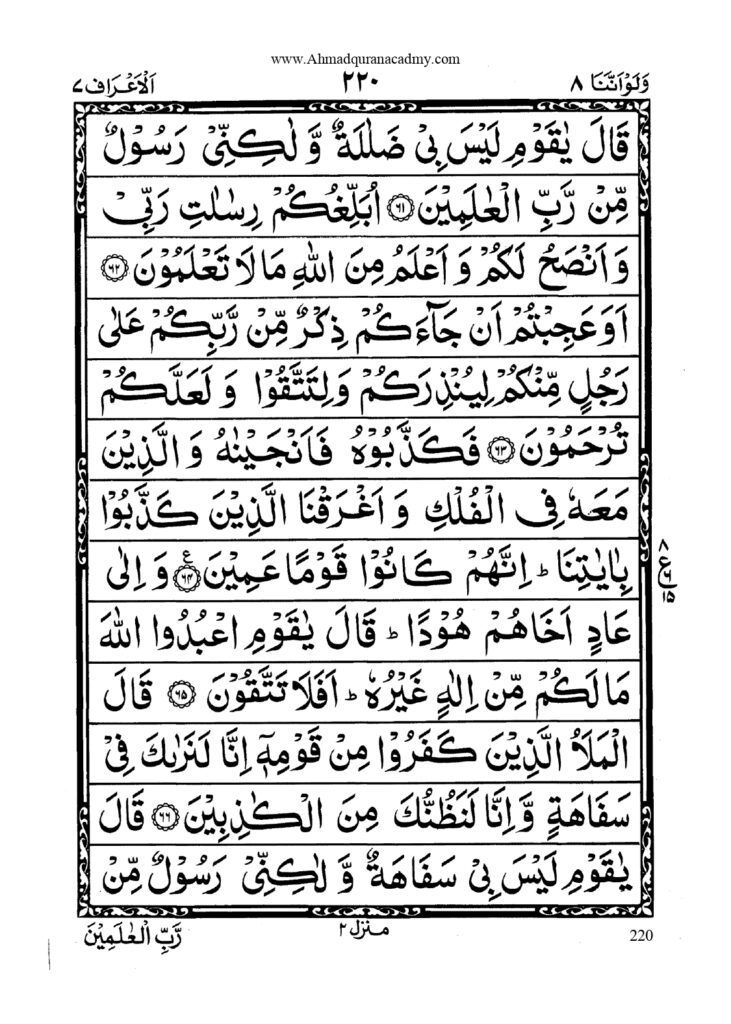 www.Ahmadquranacadmy.com
وَلَوْ اَنَّنَا ٨ ٢٢٠ اَلْاَعْرَاف ٧
قَالَ يٰقَوْمِ لَيْسَ بِيْ ضَلٰلَةٌ وَّ لٰكِنِّيْ رَسُوْلٌ
مِّنْ رَّبِّ الْعٰلَمِيْنَ ﴿٦١﴾ اُبَلِّغُكُمْ رِسٰلٰتِ رَبِّيْ
وَ اَنْصَحُ لَكُمْ وَ اَعْلَمُ مِنَ اللّٰهِ مَا لَا تَعْلَمُوْنَ ﴿٦٢﴾
اَوَ عَجِبْتُمْ اَنْ جَآءَكُمْ ذِكْرٌ مِّنْ رَّبِّكُمْ عَلٰى
رَجُلٍ مِّنْكُمْ لِيُنْذِرَكُمْ وَ لِتَتَّقُوْا وَ لَعَلَّكُمْ
تُرْحَمُوْنَ ﴿٦٣﴾ فَكَذَّبُوْهُ فَاَنْجَيْنٰهُ وَ الَّذِيْنَ
مَعَهٗ فِي الْفُلْكِ وَ اَغْرَقْنَا الَّذِيْنَ كَذَّبُوْا
بِاٰيٰتِنَا ؕ اِنَّهُمْ كَانُوْا قَوْمًا عَمِيْنَ ﴿٦٤﴾ ع وَ اِلٰى
٨ ع ٦ ١٥
عَادٍ اَخَاهُمْ هُوْدًا ؕ قَالَ يٰقَوْمِ اعْبُدُوا اللّٰهَ
مَا لَكُمْ مِّنْ اِلٰهٍ غَيْرُهٗ ؕ اَفَلَا تَتَّقُوْنَ ﴿٦٥﴾ قَالَ
الْمَلَاُ الَّذِيْنَ كَفَرُوْا مِنْ قَوْمِهٖۤ اِنَّا لَنَرٰىكَ فِيْ
سَفَاهَةٍ وَّ اِنَّا لَنَظُنُّكَ مِنَ الْكٰذِبِيْنَ ﴿٦٦﴾ قَالَ
يٰقَوْمِ لَيْسَ بِيْ سَفَاهَةٌ وَّ لٰكِنِّيْ رَسُوْلٌ مِّنْ
220 منزل ٢ رَّبِّ الْعٰلَمِيْنَ